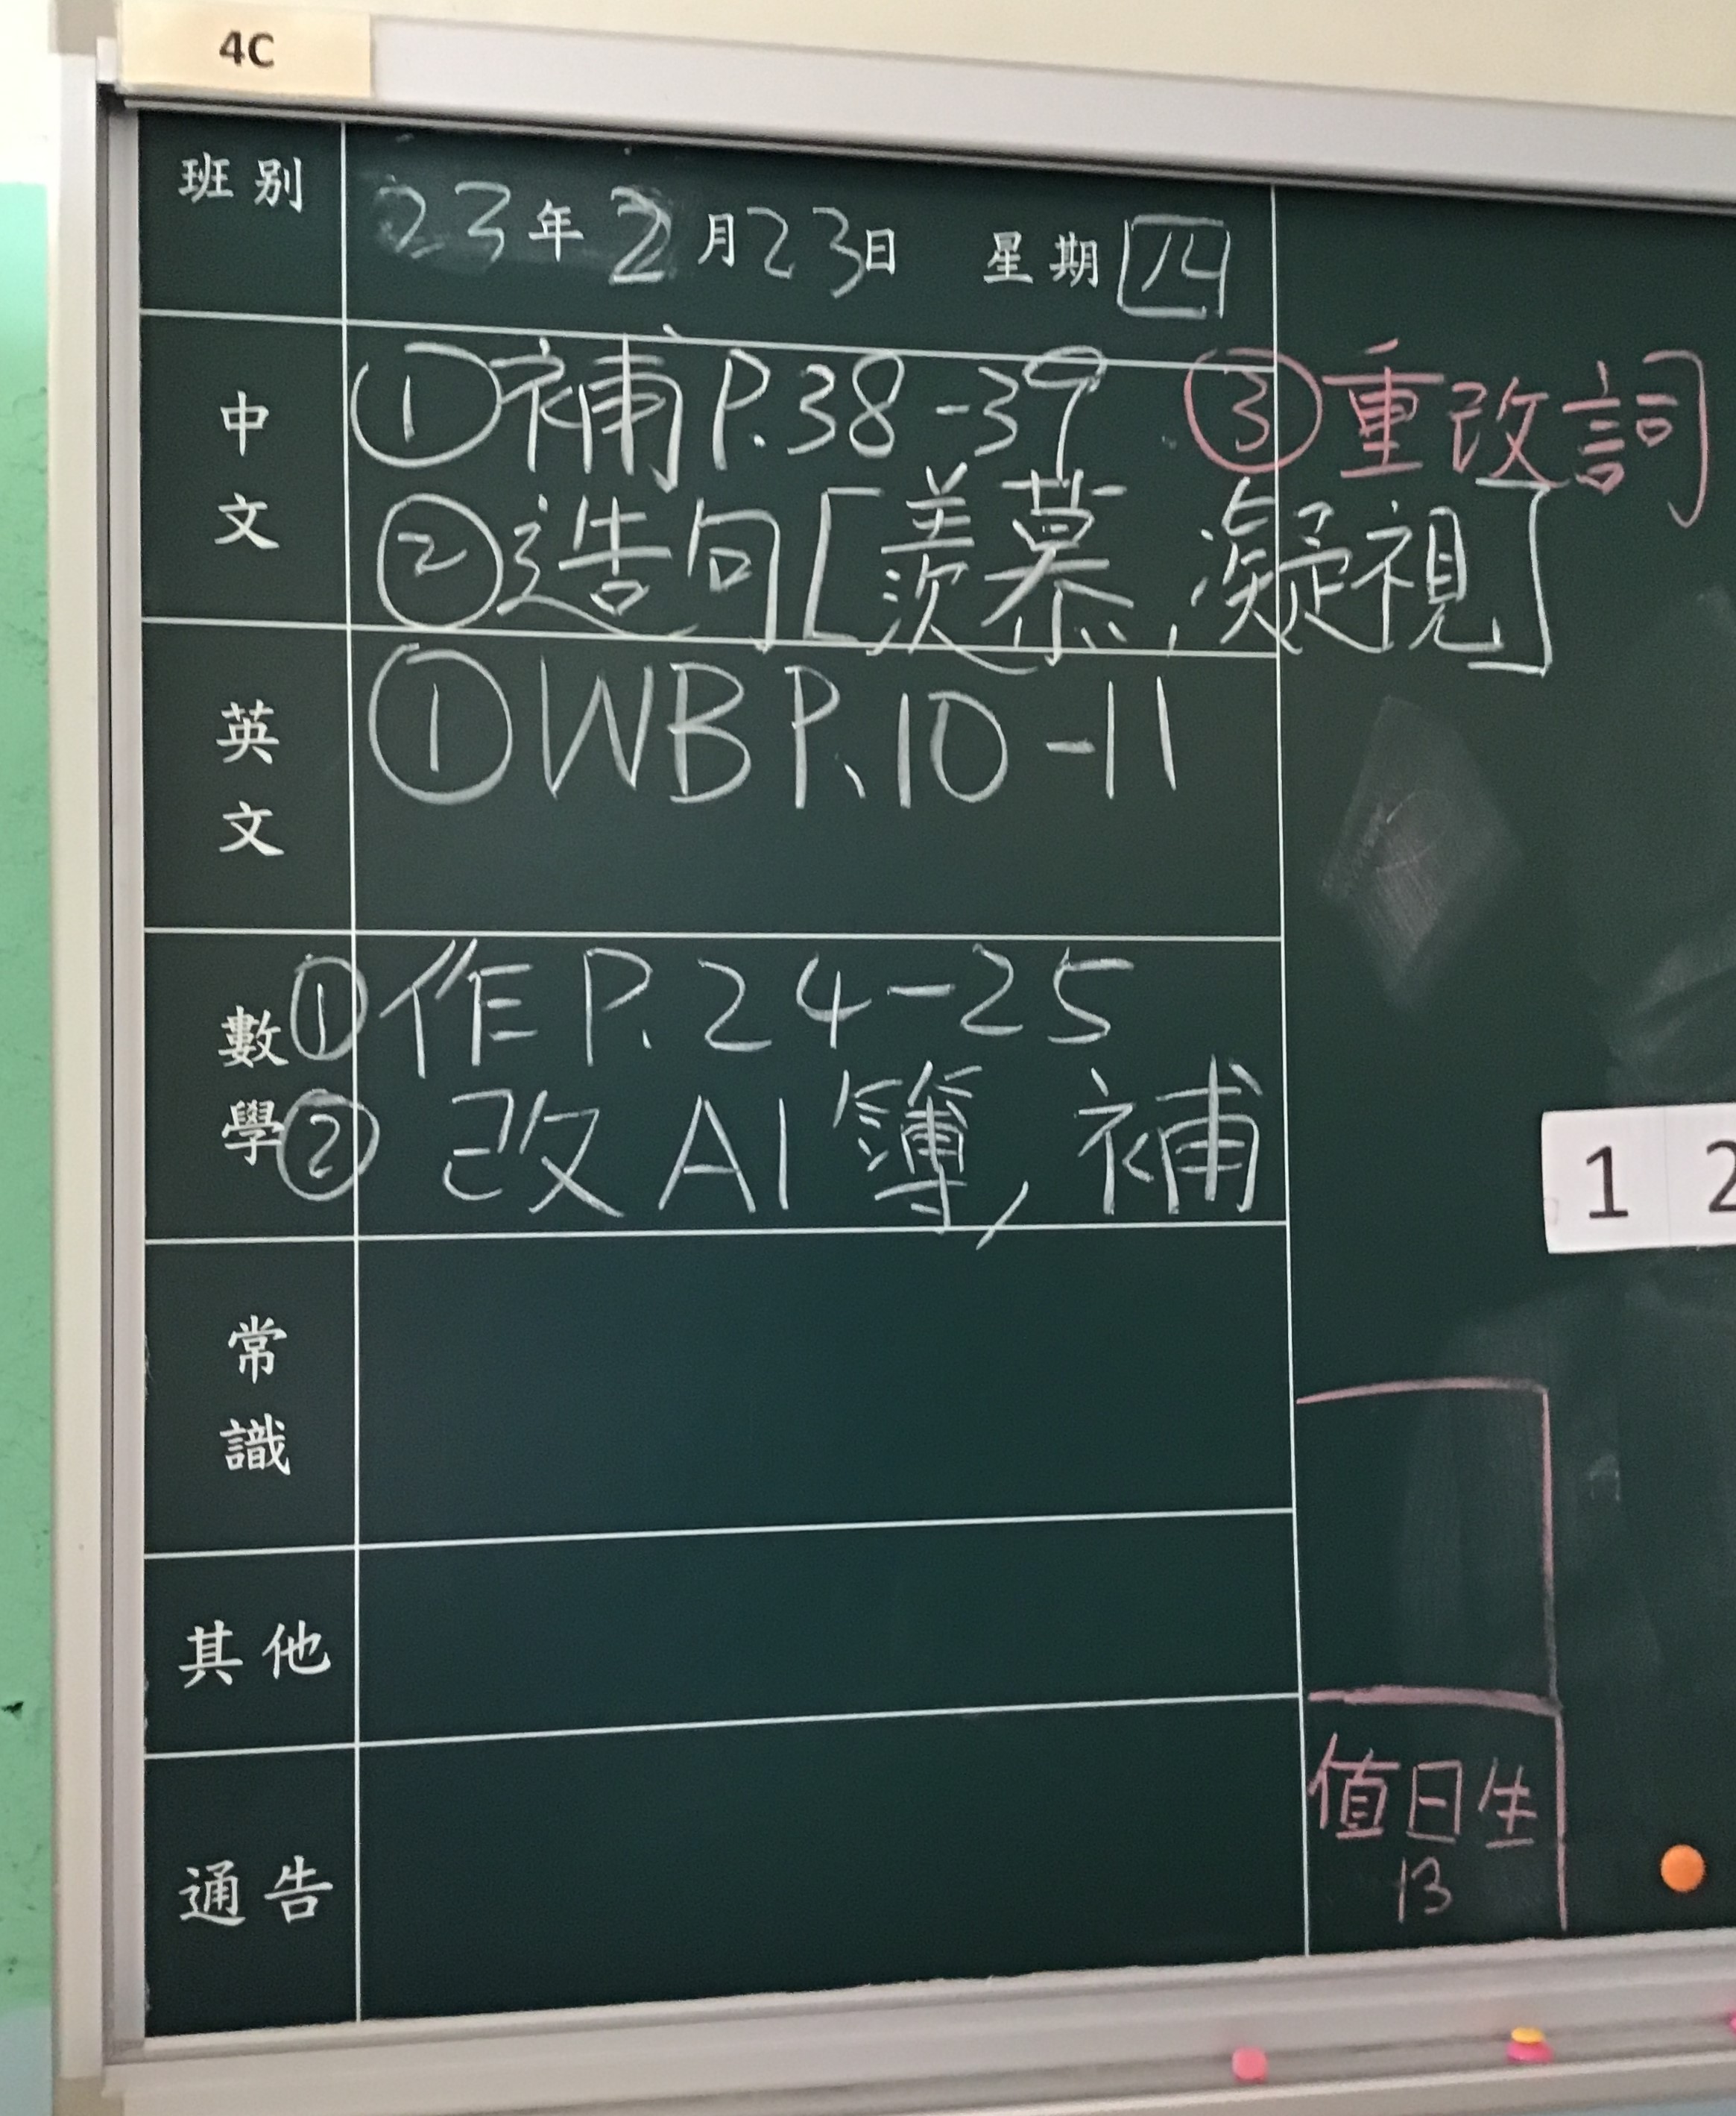 4C
班別
23年2月23日 星期四
中文
①補P.38-39 ③重改詞
②造句[羨慕,凝視]
英文
①WB P.10-11
數學
①作P.24-25
②改A1簿,補
1 2
常識
其他
通告
值日生
13